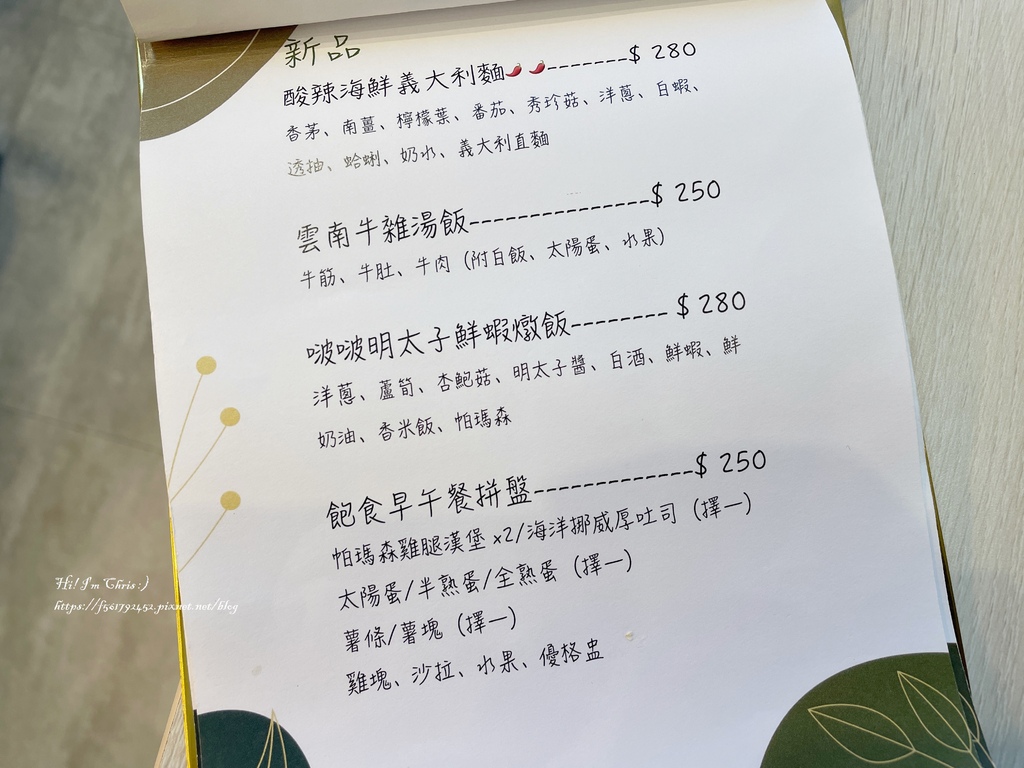 新品
酸辣海鮮義大利麵🌶️🌶️-------$ 280
香茅、南薑、檸檬葉、番茄、秀珍菇、洋蔥、白蝦、
透抽、蛤蜊、奶水、義大利直麵
雲南牛雜湯飯---------------$ 250
牛筋、牛肚、牛肉（附白飯、太陽蛋、水果）
啵啵明太子鮮蝦燉飯-------- $ 280
洋蔥、蘆筍、杏鮑菇、明太子醬、白酒、鮮蝦、鮮
奶油、香米飯、帕瑪森
飽食早午餐拼盤-------------$ 250
帕瑪森雞腿漢堡 x2/海洋挪威厚吐司（擇一）
太陽蛋/半熟蛋/全熟蛋（擇一）
薯條/薯塊（擇一）
雞塊、沙拉、水果、優格盅
Hi! I'm Chris :)
https://f561792452.pixnet.net/blog